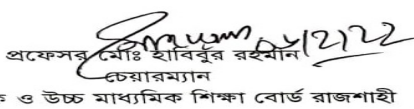 প্রফেসর মোঃ হাবিবুর রহমান
চেয়ারম্যান
ও উচ্চ মাধ্যমিক শিক্ষা বোর্ড রাজশাহী